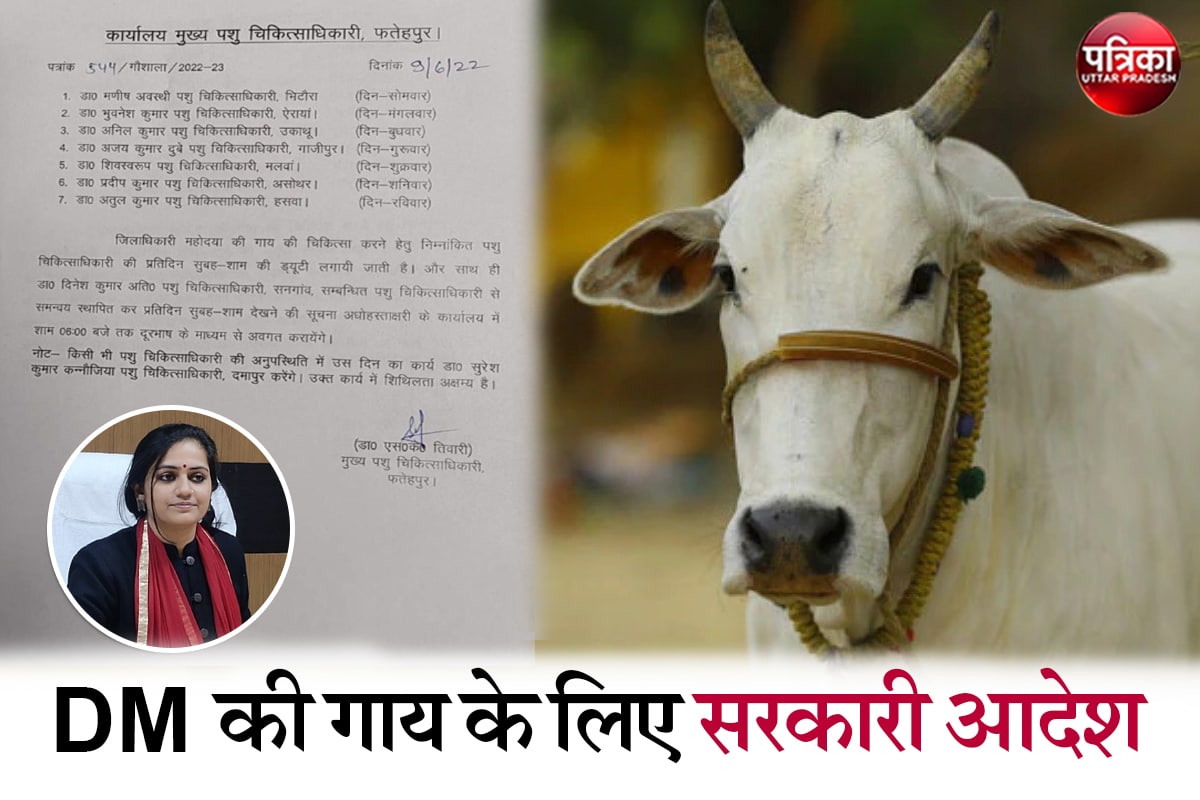 कार्यालय मुख्य पशु चिकित्साधिकारी, फतेहपुर।
पत्रांक 544/गौशाला/2022-23 दिनांक 9/6/22
1. डा0 मणीष अवस्थी पशु चिकित्साधिकारी, भिटौरा (दिन–सोमवार)
2. डा0 भुवनेश कुमार पशु चिकित्साधिकारी, ऐरायां। (दिन–मंगलवार)
3. डा0 अनिल कुमार पशु चिकित्साधिकारी, उकाथू। (दिन–बुधवार)
4. डा0 अजय कुमार दुबे पशु चिकित्साधिकारी, गाजीपुर। (दिन–गुरूवार)
5. डा0 शिवस्वरूप पशु चिकित्साधिकारी, मलवां। (दिन–शुक्रवार)
6. डा0 प्रदीप कुमार पशु चिकित्साधिकारी, असोथर। (दिन–शनिवार)
7. डा0 अतुल कुमार पशु चिकित्साधिकारी, हसवा। (दिन–रविवार)
जिलाधिकारी महोदया की गाय की चिकित्सा करने हेतु निम्नांकित पशु
चिकित्साधिकारी की प्रतिदिन सुबह–शाम की ड्यूटी लगायी जाती है। और साथ ही
डा0 दिनेश कुमार अति0 पशु चिकित्साधिकारी, सनगांव, सम्बन्धित पशु चिकित्साधिकारी से
समन्वय स्थापित कर प्रतिदिन सुबह–शाम देखने की सूचना अधोहस्ताक्षरी के कार्यालय में
शाम 06:00 बजे तक दूरभाष के माध्यम से अवगत करायेंगे।
नोट– किसी भी पशु चिकित्साधिकारी की अनुपस्थिति में उस दिन का कार्य डा0 सुरेश
कुमार कन्नौजिया पशु चिकित्साधिकारी, दमापुर करेंगे। उक्त कार्य में शिथिलता अक्षम्य है।
(डा0 एस0के0 तिवारी)
मुख्य पशु चिकित्साधिकारी,
फतेहपुर।
पत्रिका
UTTAR PRADESH
DM की गाय के लिए सरकारी आदेश